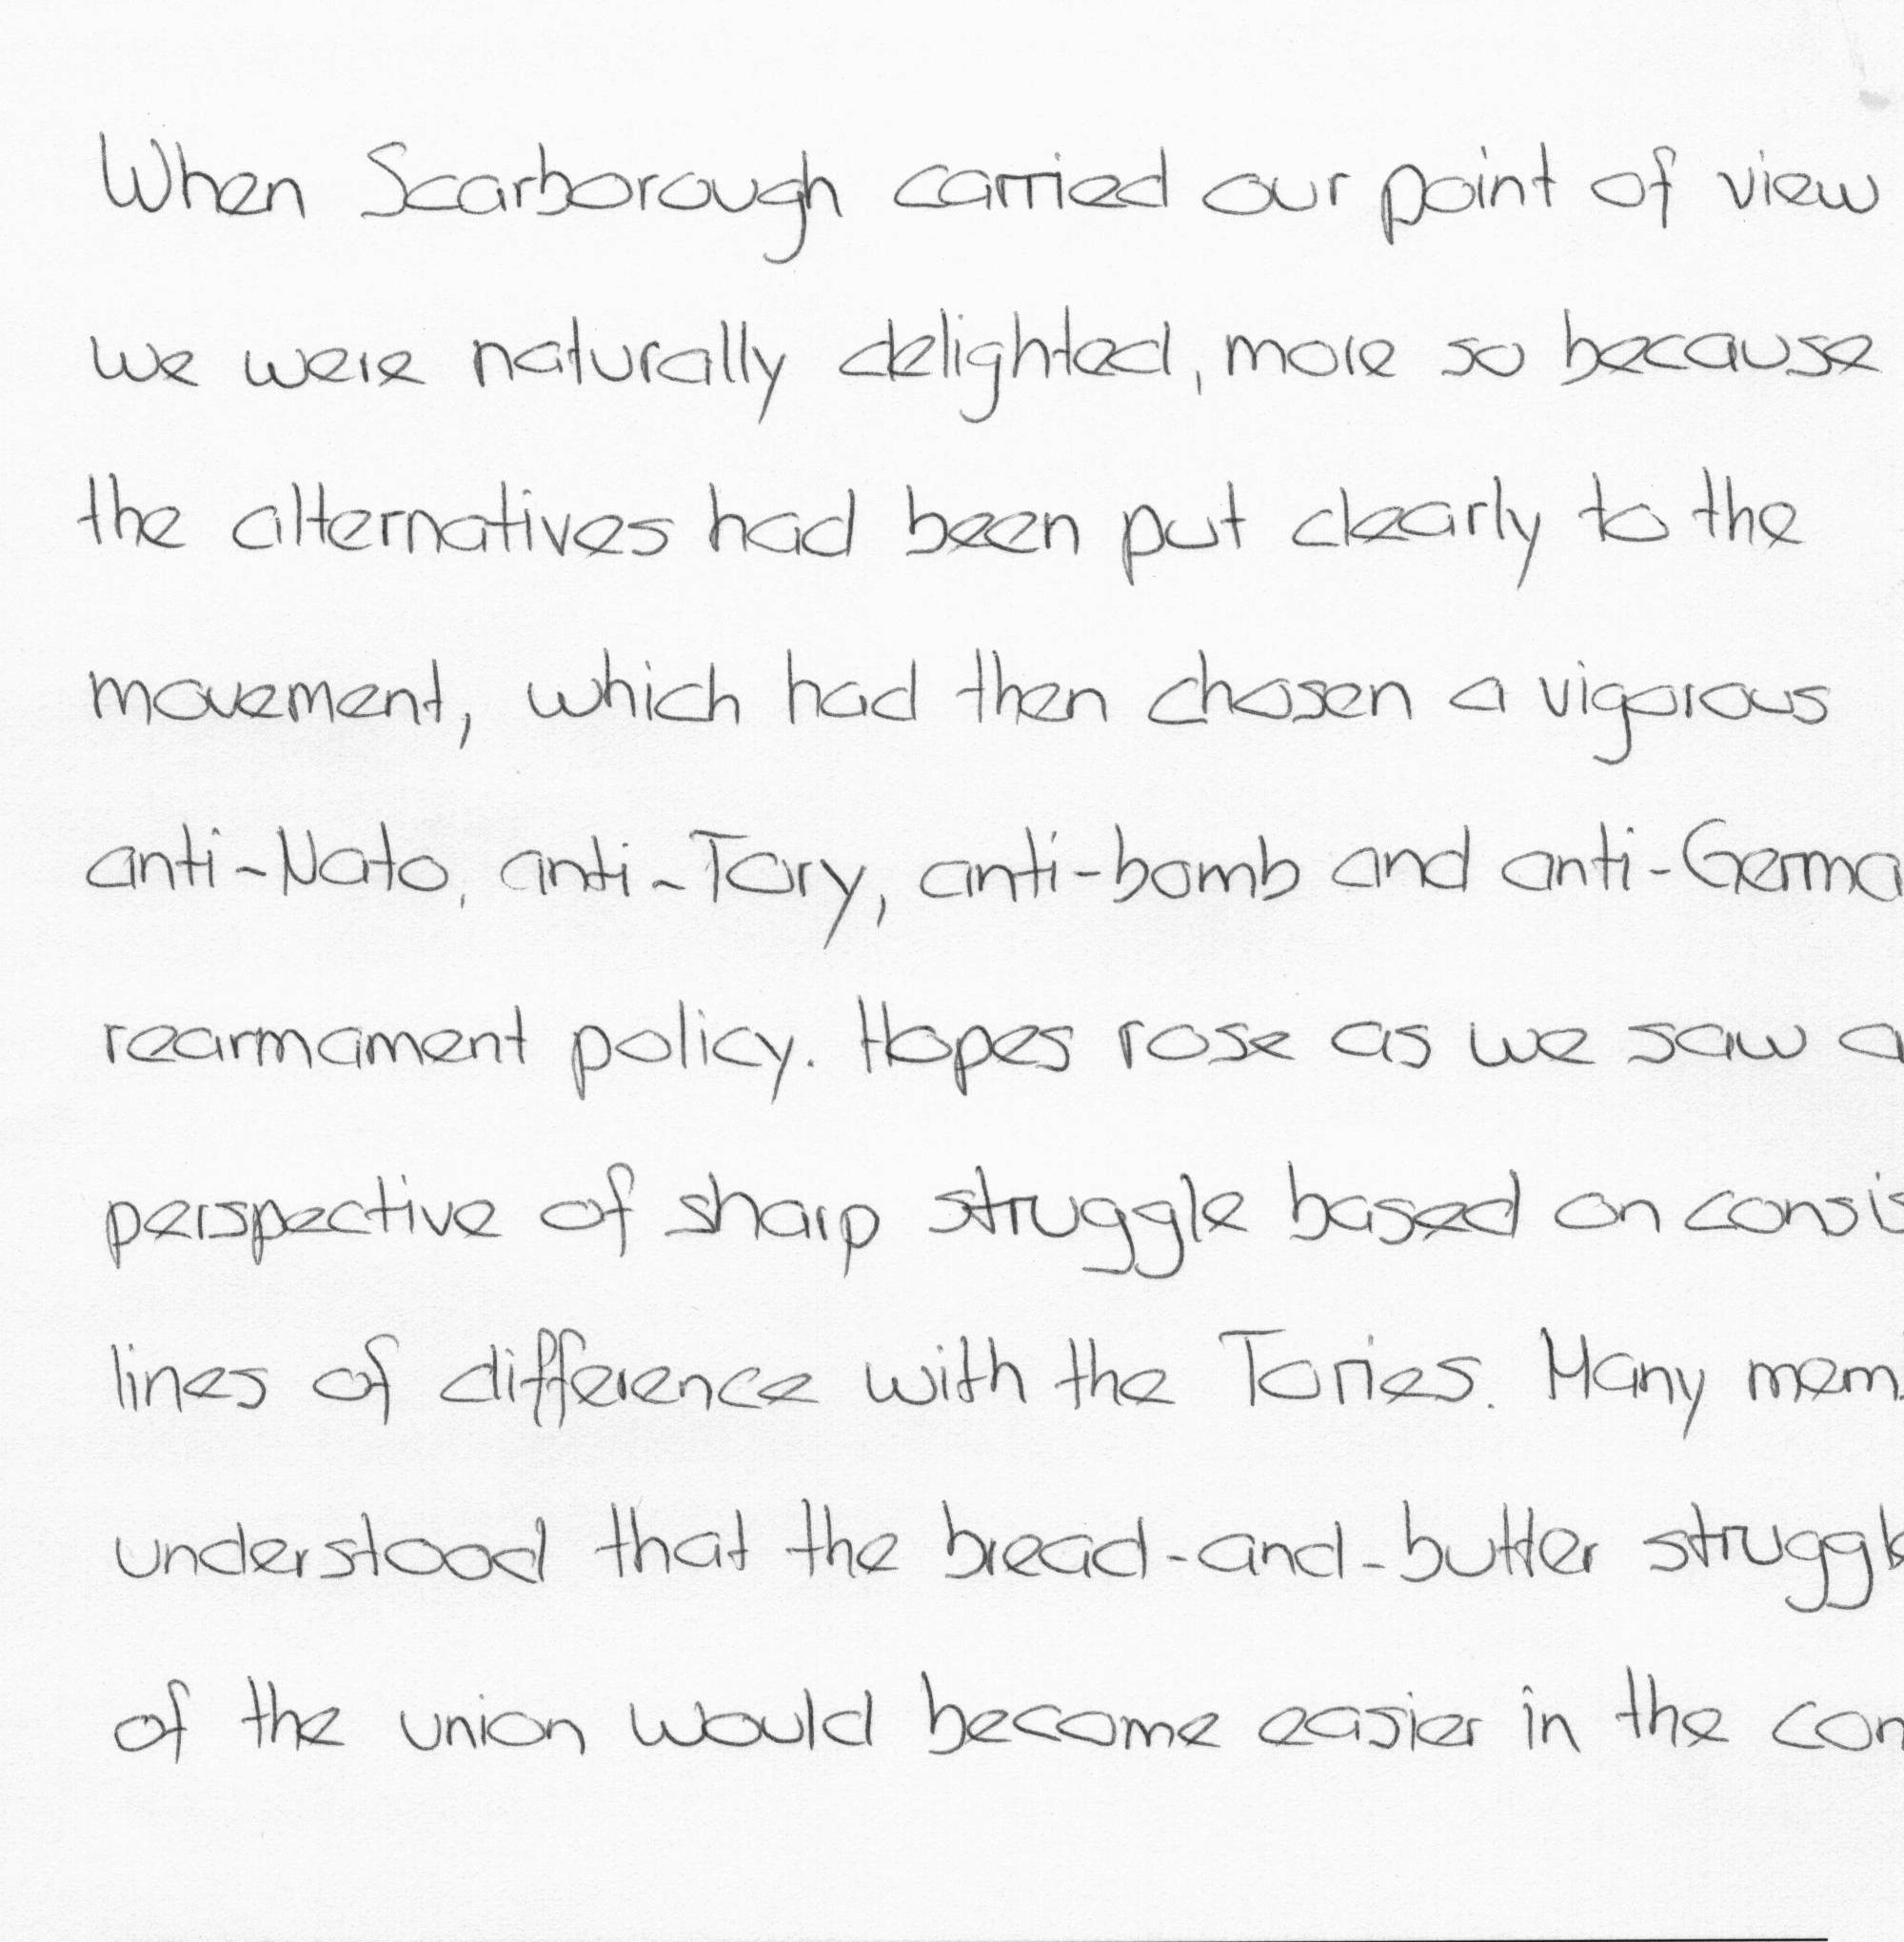 When Scarborough carried our point of view
we were naturally delighted, more so because
the alternatives had been put clearly to the
movement, which had then chosen a vigorous
anti-Nato, anti-Tory, anti-bomb and anti-Germa
rearmament policy. Hopes rose as we saw a
perspective of sharp struggle based on consis
lines of difference with the Tories. Many mem
understood that the bread-and-butter struggle
of the union would become easier in the con